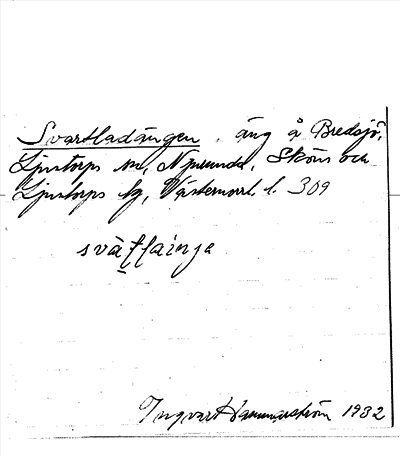 Svartladängen, äng å Bredsjö,
Ljustorps sn, Njurunda, Sköns och
Ljustorps tg, Västernorrl. l. 309
Ingvar Hammarström 1932